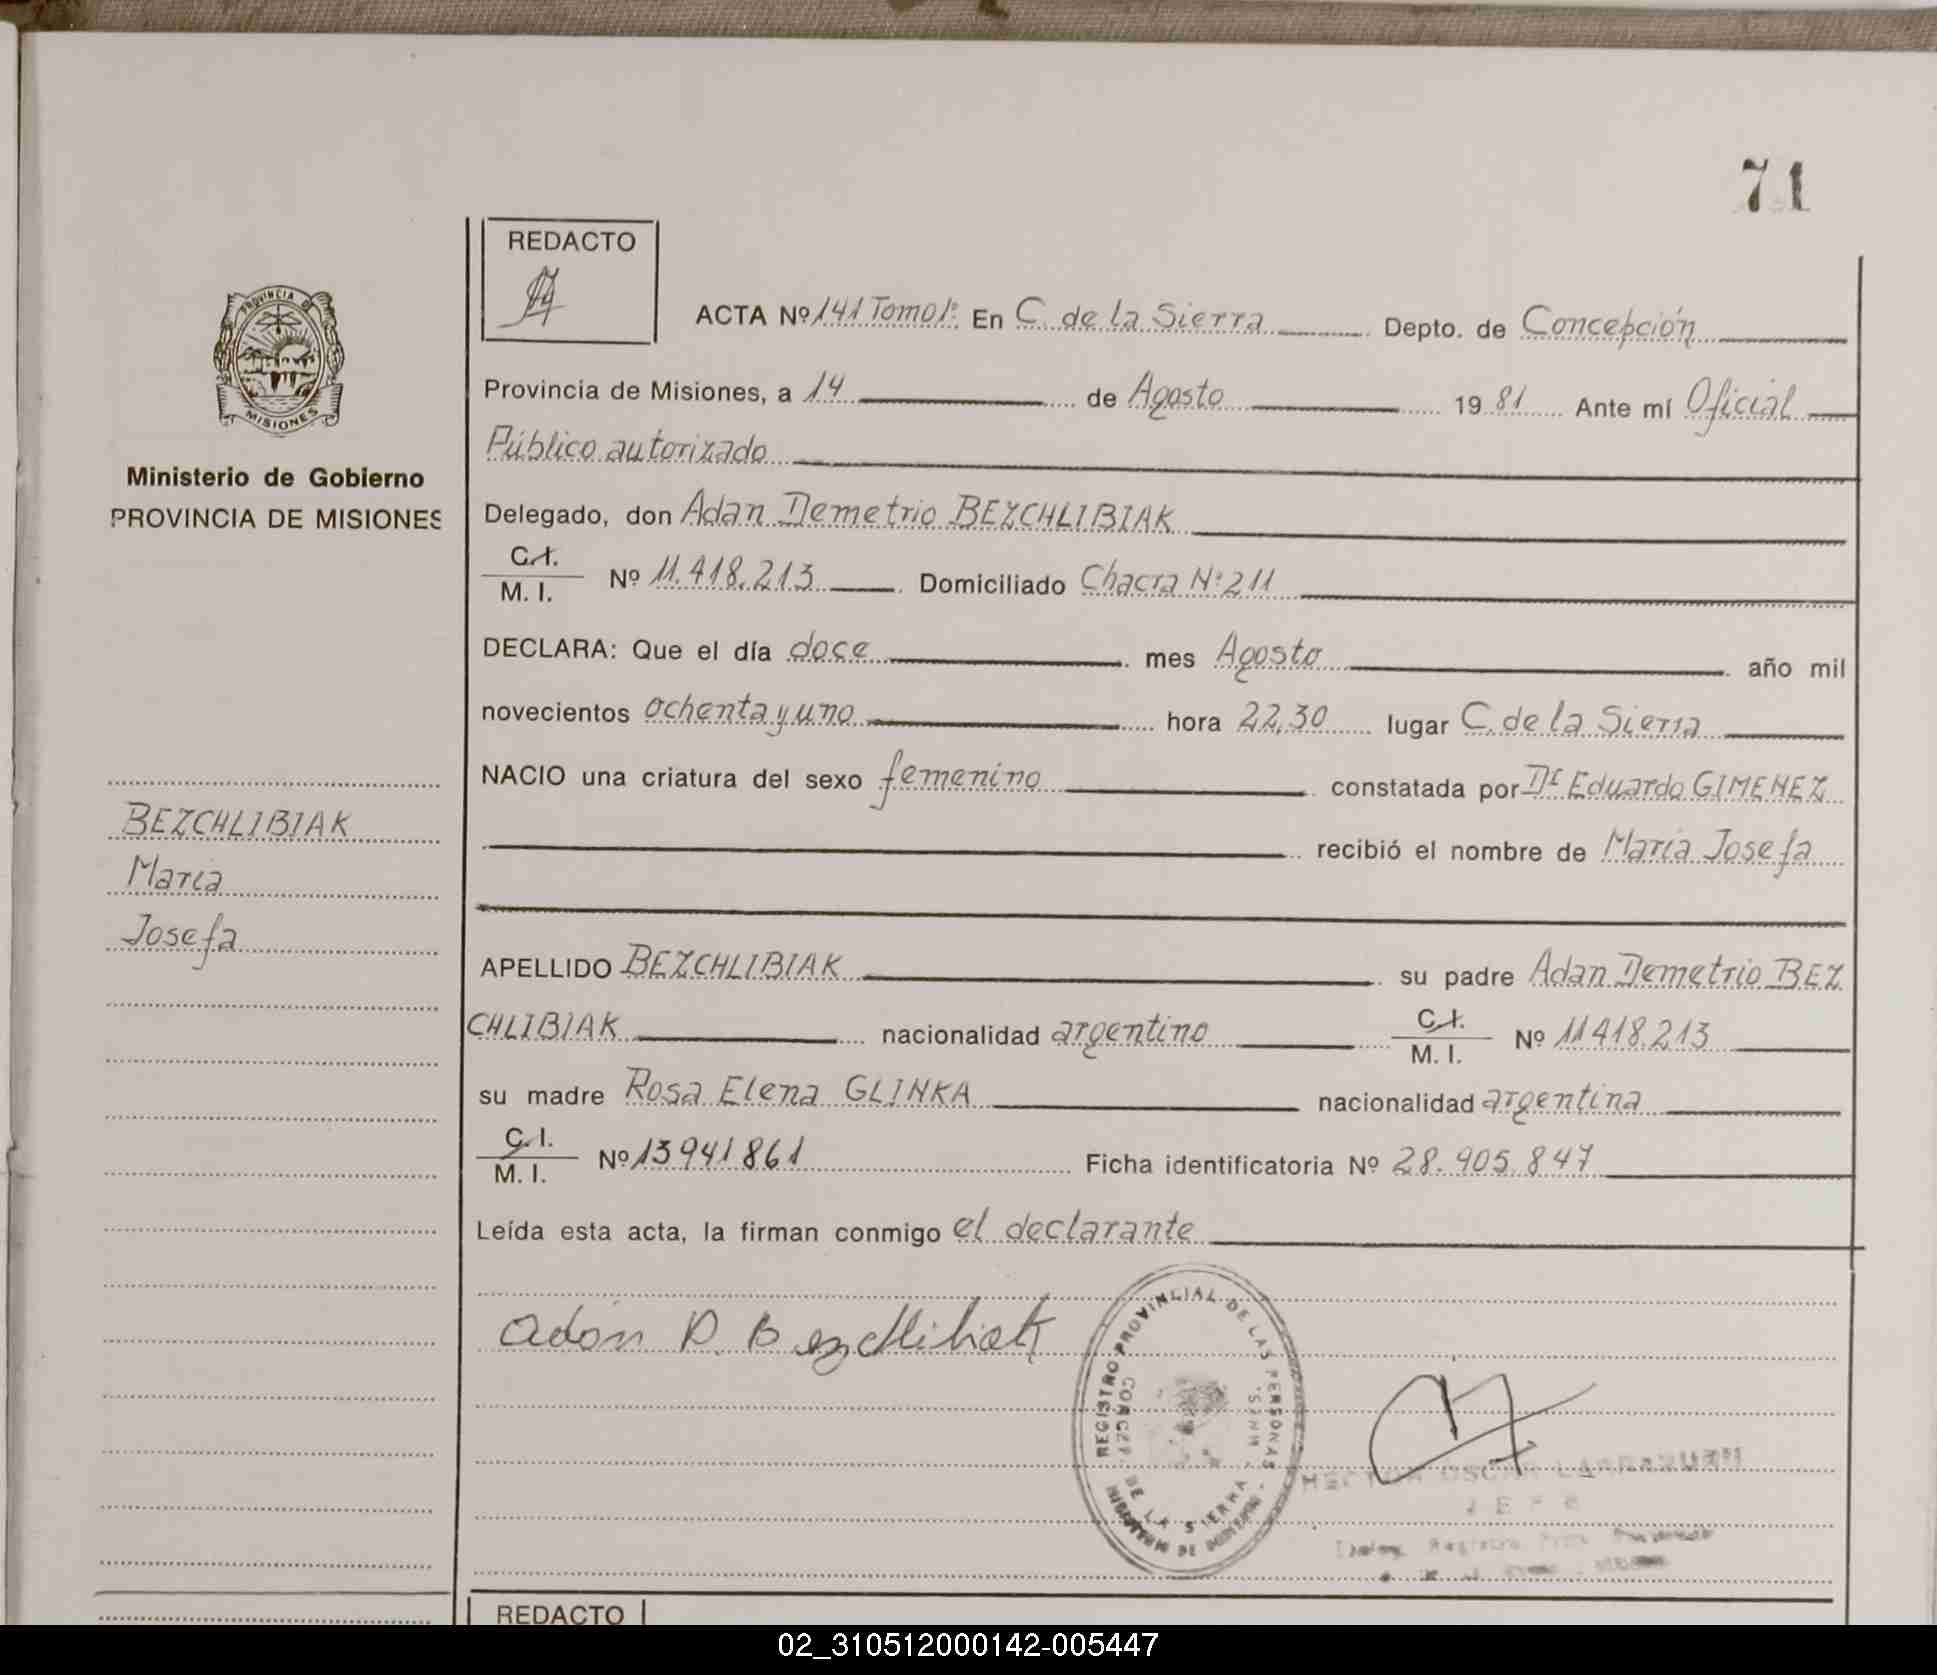 71
REDACTO
ACTA Nº 141 Tomo 1º En C. de la Sierra Depto. de Concepción
Provincia de Misiones, a 14 de Agosto 19 81 Ante mí Oficial
Público autorizado
Delegado, don Adan Demetrio BEZCHLIBIAK
C.I.
M. I. Nº 11.418.213 Domiciliado Chacra Nº 211
DECLARA: Que el día doce mes Agosto año mil
novecientos ochenta y uno hora 22,30 lugar C. de la Sierra
NACIO una criatura del sexo femenino constatada por Dr Eduardo GIMENEZ
recibió el nombre de María Josefa
APELLIDO BEZCHLIBIAK su padre Adan Demetrio BEZ
CHLIBIAK nacionalidad argentino C.I.
M. I. Nº 11418.213
su madre Rosa Elena GLINKA nacionalidad argentina
C.I.
M. I. Nº 13941861 Ficha identificatoria Nº 28.905.847
Leída esta acta, la firman conmigo el declarante
Adán D. Bezchlibiak
REGISTRO PROVINCIAL DE LAS PERSONAS
DE LA SIERRA
HECTOR OSCAR
JEFE
PROVINCIA DE
MISIONES
Ministerio de Gobierno
PROVINCIA DE MISIONES
BEZCHLIBIAK
María
Josefa
REDACTO
02_310512000142-005447